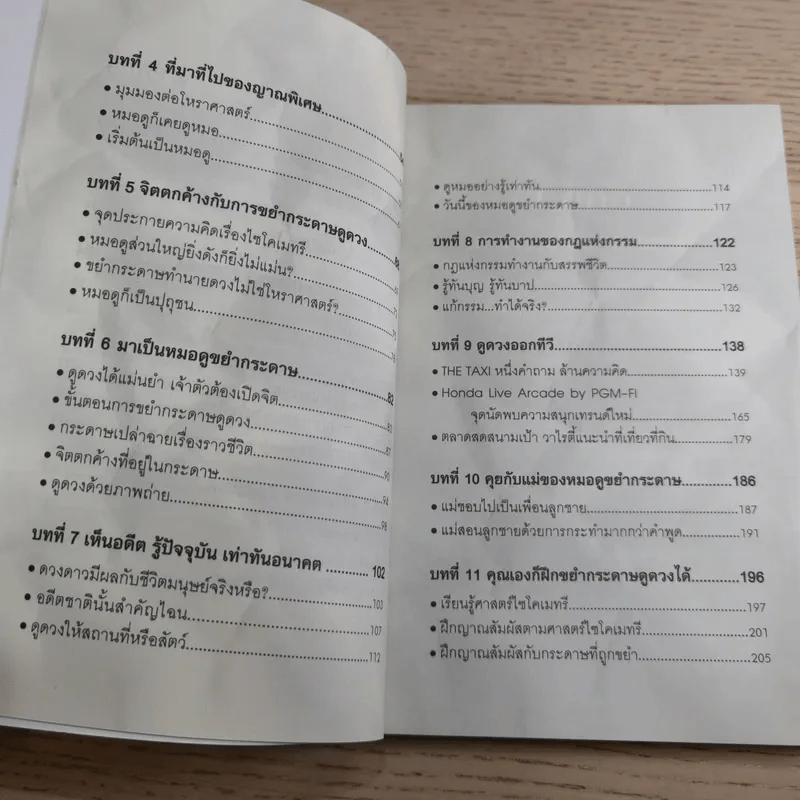 บทที่ 4 ที่มาที่ไปของญาณพิเศษ
• มุมมองต่อโหราศาสตร์
• หมอดูก็เคยดูหมอ
• เริ่มต้นเป็นหมอดู
บทที่ 5 จิตตกค้างกับการขยำกระดาษดูดวง
• จุดประกายความคิดเรื่องไซโคเมทรี
• หมอดูส่วนใหญ่ยิ่งดังก็ยิ่งไม่แม่น?
• ขยำกระดาษทำนายดวงไม่ใช่โหราศาสตร์?
• หมอดูก็เป็นปุถุชน
บทที่ 6 มาเป็นหมอดูขยำกระดาษ 82
• ดูดวงได้แม่นยำ เจ้าตัวต้องเปิดจิต
• ขั้นตอนการขยำกระดาษดูดวง 87
• กระดาษเปล่าฉายเรื่องราวชีวิต 90
• จิตตกค้างที่อยู่ในกระดาษ 94
• ดูดวงด้วยภาพถ่าย 98
บทที่ 7 เห็นอดีต รู้ปัจจุบัน เท่าทันอนาคต 102
• ดวงดาวมีผลกับชีวิตมนุษย์จริงหรือ? 103
• อดีตชาตินั้นสำคัญไฉน 107
• ดูดวงให้สถานที่หรือสัตว์ 112
• ดูหมออย่างรู้เท่าทัน 114
• วันนี้ของหมอดูขยำกระดาษ 117
บทที่ 8 การทำงานของกฎแห่งกรรม 122
• กฎแห่งกรรมทำงานกับสรรพชีวิต 123
• รู้ทันบุญ รู้ทันบาป 126
• แก้กรรม...ทำได้จริง? 132
บทที่ 9 ดูดวงออกทีวี 138
• THE TAXI หนึ่งคำถาม ล้านความคิด 139
• Honda Live Arcade by PGM-FI
จุดนัดพบความสนุกเทรนด์ใหม่ 165
• ตลาดสดสนามเป้า วาไรตี้แนะนำที่เที่ยวที่กิน 179
บทที่ 10 คุยกับแม่ของหมอดูขยำกระดาษ 186
• แม่ชอบไปเป็นเพื่อนลูกชาย 187
• แม่สอนลูกชายด้วยการกระทำมากกว่าคำพูด 191
บทที่ 11 คุณเองก็ฝึกขยำกระดาษดูดวงได้ 196
• เรียนรู้ศาสตร์ไซโคเมทรี 197
• ฝึกญาณสัมผัสตามศาสตร์ไซโคเมทรี 201
• ฝึกญาณสัมผัสกับกระดาษที่ถูกขยำ 205